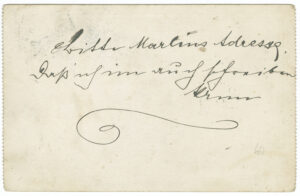 Bitte Martins Adresse.
Daß ich im auch schreiben